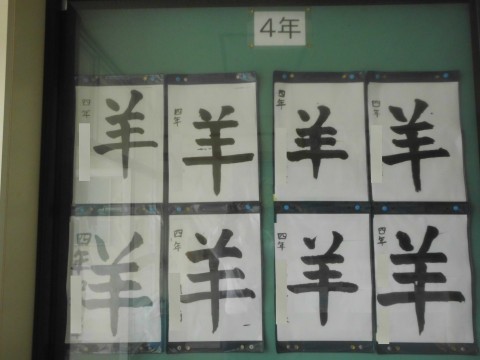 4年
四年
羊
四年
羊
四年
羊
四年
羊
四年
羊
四年
羊
四年
羊
四年
羊